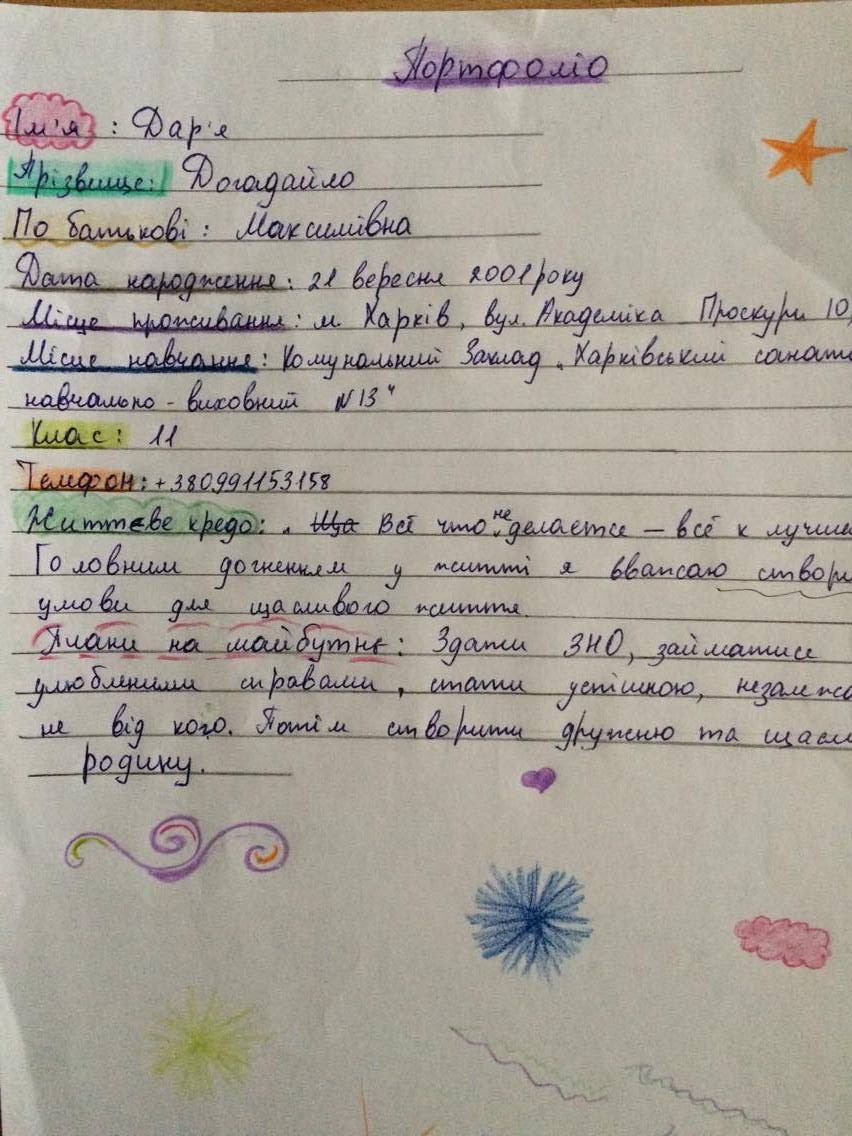 Портфоліо
Ім'я : Дар'я
Прізвище: Догадайло
По батькові : Максимівна
Дата народження: 21 вересня 2001 року
Місце проживання: м. Харків, вул. Академіка Проскури 10,
Місце навчання: Комунальний Заклад „Харківський санато
навчально - виховний №13"
Клас: 11
Телефон: +380991153158
Життєве кредо: „ Ща Всё что не делается – всё к лучше
Головним догненням у житті я вважаю створ
умови для щасливого життя.
Плани на майбутнє: Здати ЗНО, займатися
улюбленими справами, стати успішною, незалеж
не від кого. Потім створити дружню та щасл
родину.